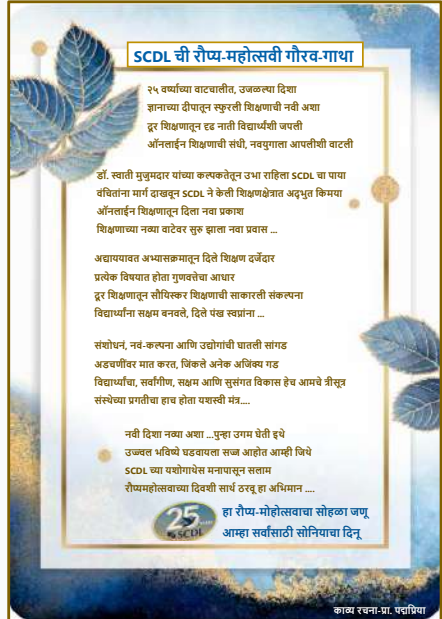 SCDL ची रौप्य-महोत्सवी गौरव-गाथा
२५ वर्ष्याच्या वाटचालीत, उजळल्या दिशा
ज्ञानाच्या दीपातून स्फुरली शिक्षणाची नवी अशा
दूर शिक्षणातून दृढ नाती विद्यार्थ्यांशी जपली
ऑनलाईन शिक्षणाची संधी, नवयुगाला आपलीशी वाटली
डॉ. स्वाती मुजुमदार यांच्या कल्पकतेतून उभा राहिला SCDL चा पाया
वंचितांना मार्ग दाखवून SCDL ने केली शिक्षणक्षेत्रात अद्भुत किमया
ऑनलाईन शिक्षणातून दिला नवा प्रकाश
शिक्षणाच्या नव्या वाटेवर सुरु झाला नवा प्रवास ...
अद्याययावत अभ्यासक्रमातून दिले शिक्षण दर्जेदार
प्रत्येक विषयात होता गुणवत्तेचा आधार
दूर शिक्षणातून सौयिस्कर शिक्षणाची साकारली संकल्पना
विद्यार्थ्यांना सक्षम बनवले, दिले पंख स्वप्नांना ...
संशोधनं, नवं-कल्पना आणि उद्योगांची घातली सांगड
अडचणींवर मात करत, जिंकले अनेक अजिंक्य गड
विद्यार्थ्यांचा, सर्वांगीण, सक्षम आणि सुसंगत विकास हेच आमचे त्रीसूत्र
संस्थेच्या प्रगतीचा हाच होता यशस्वी मंत्र....
नवी दिशा नव्या अशा ...पुन्हा उगम घेती इथे
उज्वल भविष्ये घडवायला सज्ज आहोत आम्ही जिथे
SCDL च्या यशोगाथेस मनापासून सलाम
रौप्यमहोत्सवाच्या दिवशी सार्थ ठरवू हा अभिमान ....
25
SCDL
हा रौप्य-मोहोत्सवाचा सोहळा जणू
आम्हा सर्वांसाठी सोनियाचा दिनू
काव्य रचना-प्रा. पद्मप्रिया